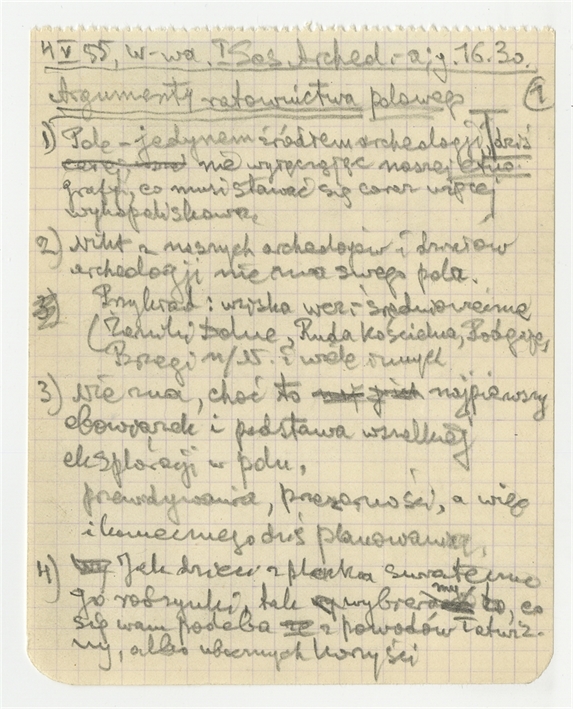 4 V 55, W-wa, g. 16.30.
Argumenty ratownictwa polowego
1
1) Pole – jedynem źródłem archeologji, dziś
nie wyręczając naszej etno
grafji, co musi stawać się coraz więcej
wykopaliskową.
2) Nikt z naszych archeologów i
archeologji nie zna swego pola.
Przykład: wczesnośredniowieczne
Dolne, Ruda Kościelna, Podgrodzie,
Brzegi n/N. i wiele innych
3) Nie zna, choć to najpierwszy
obowiązek i podstawa wszelkiej
eksploracji w polu,
przewidywania, przezorności, a więc
i koniecznego dziś planowania,
4) Jak dzieci z placka świątecznego
rodzynki, tak wybieramy to, co
się wam podoba z powodów łatwiz-
ny, albo ubocznych korzyści